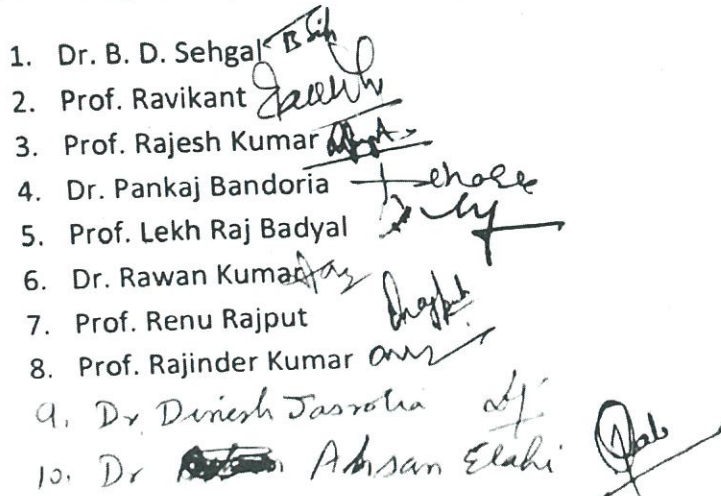 1. Dr. B. D. Sehgal
2. Prof. Ravikant
3. Prof. Rajesh Kumar
4. Dr. Pankaj Bandoria
5. Prof. Lekh Raj Badyal
6. Dr. Rawan Kumar
7. Prof. Renu Rajput
8. Prof. Rajinder Kumar
9. Dr Dinesh Jasrotia
10. Dr Ahsan Elahi